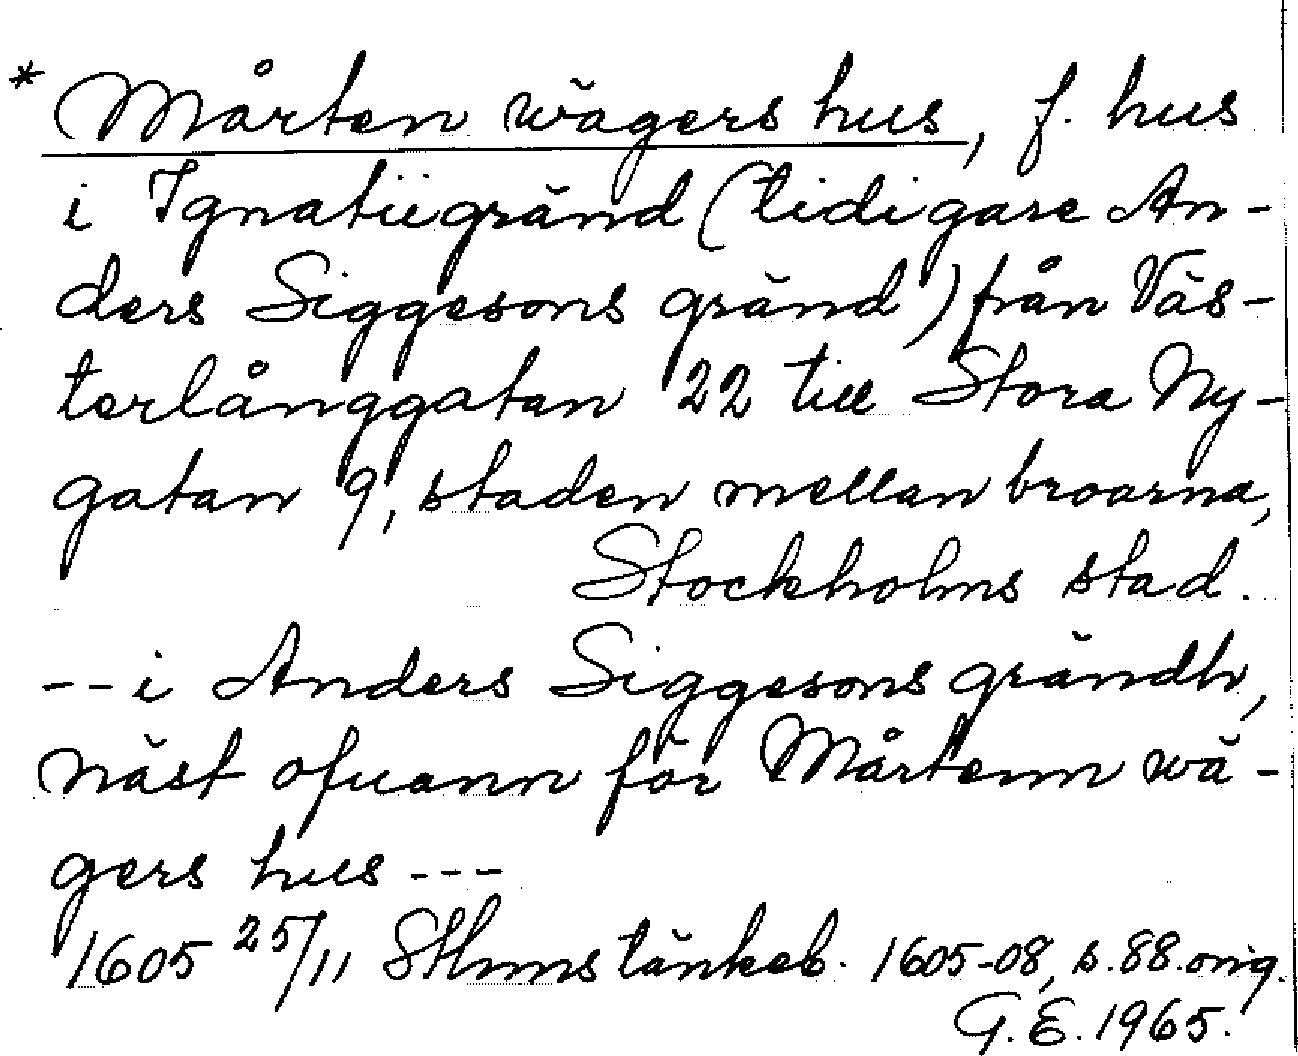 * Mårten wägers hus, f. hus
i Ignatiigränd (tidigare An-
ders Siggesons gränd) från Väs-
terlånggatan 22 till Stora Ny-
gatan 9, staden mellan broarna,
Stockholms stad.
--i Anders Siggesons grändh,
näst ofuann för Mårtenn wä-
gers hus ---
1605 25/11 Sthms tänkeb. 1605-08, s. 88. orig.
G. E. 1965.